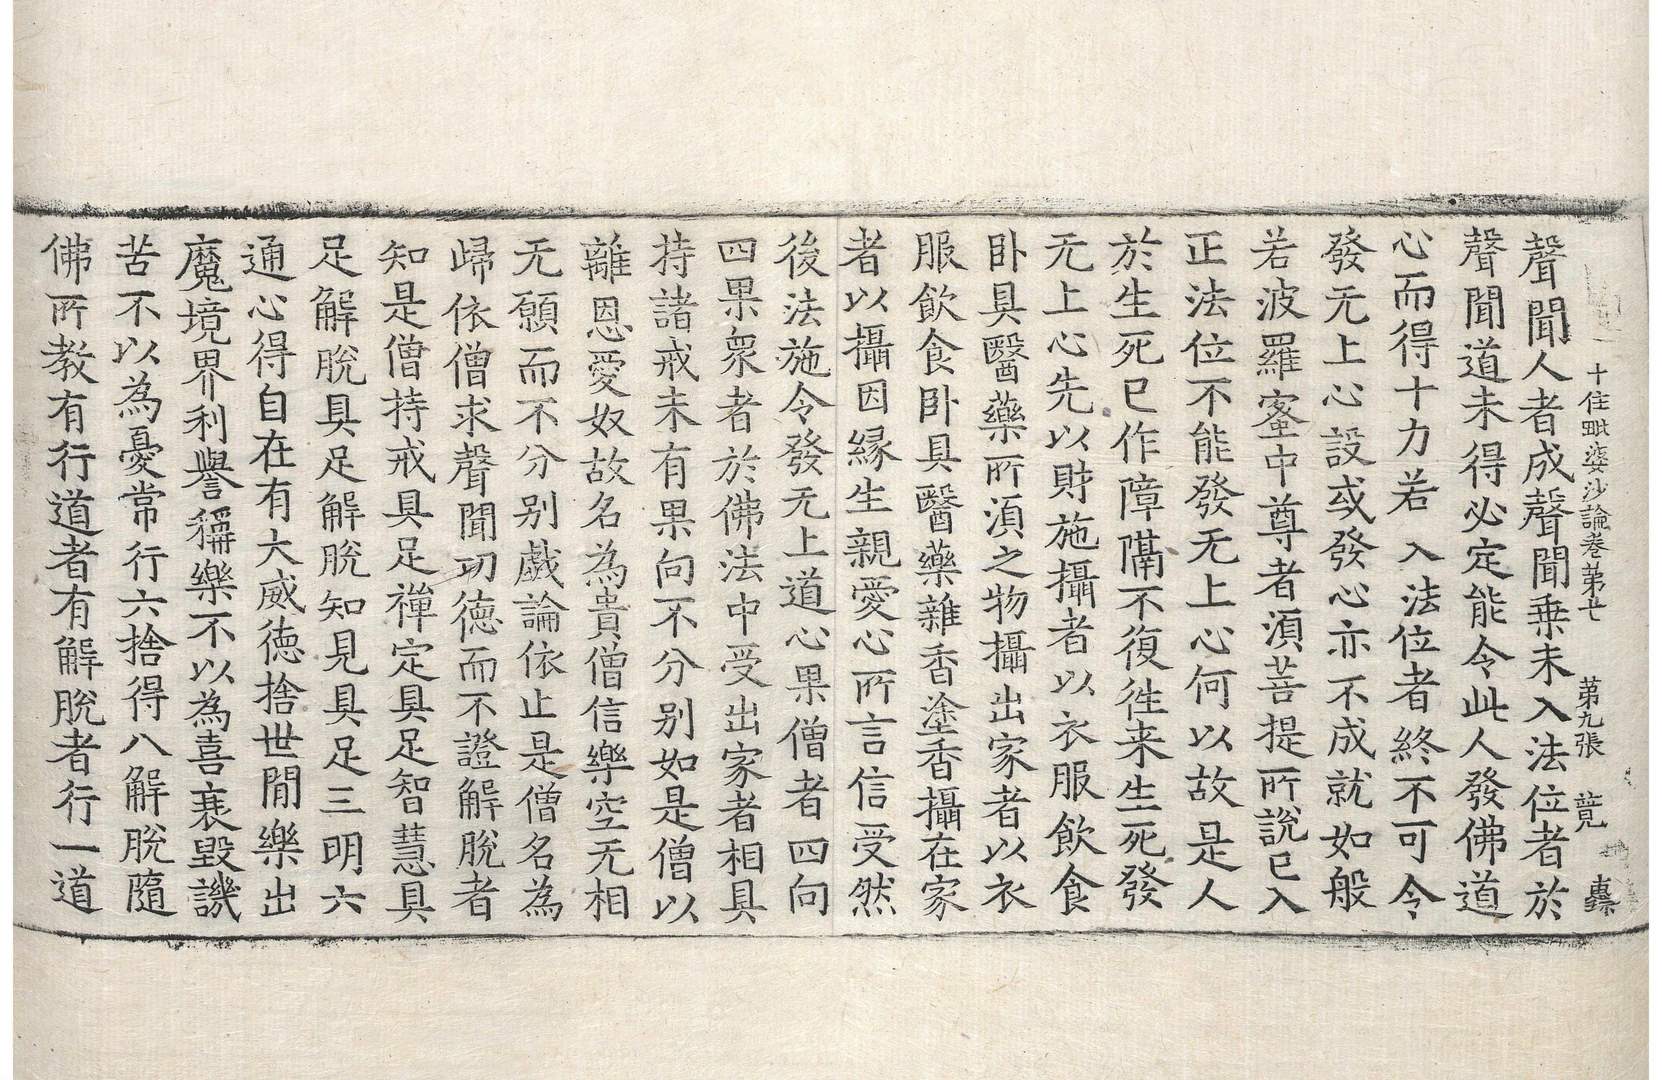 十住毗婆沙論卷第七 第九張
聲聞人者成聲聞乗未入法位者於
聲聞道未得必定能令此人發佛道
心而得十力若 入法位者終不可令
發无上心設或發心亦不成就如般
若波羅蜜中尊者湏菩提所說已入
正法位不能發无上心何以故是人
於生死已作障隔不復徃来生死發
无上心先以財施攝者以衣服飲食
卧具醫藥所湏之物攝出家者以衣
服飲食卧具醫藥雜香塗香攝在家
者以攝因緣生親愛心所言信受然
後法施令發无上道心果僧者四向
四果衆者於佛法中受出家者相具
持諸戒未有果向不分别如是僧以
離恩愛奴故名為貴僧信樂空无相
无願而不分别戯論依止是僧名為
歸依僧求聲聞功德而不證解脫者
知是僧持戒具足禪定具足智慧具
足解脫具足解脫知見具足三明六
通心得自在有大威德捨世閒樂出
魔境界利譽稱樂不以為喜衰毀譏
苦不以為憂常行六捨得八解脫隨
佛所教有行道者有解脫者行一道